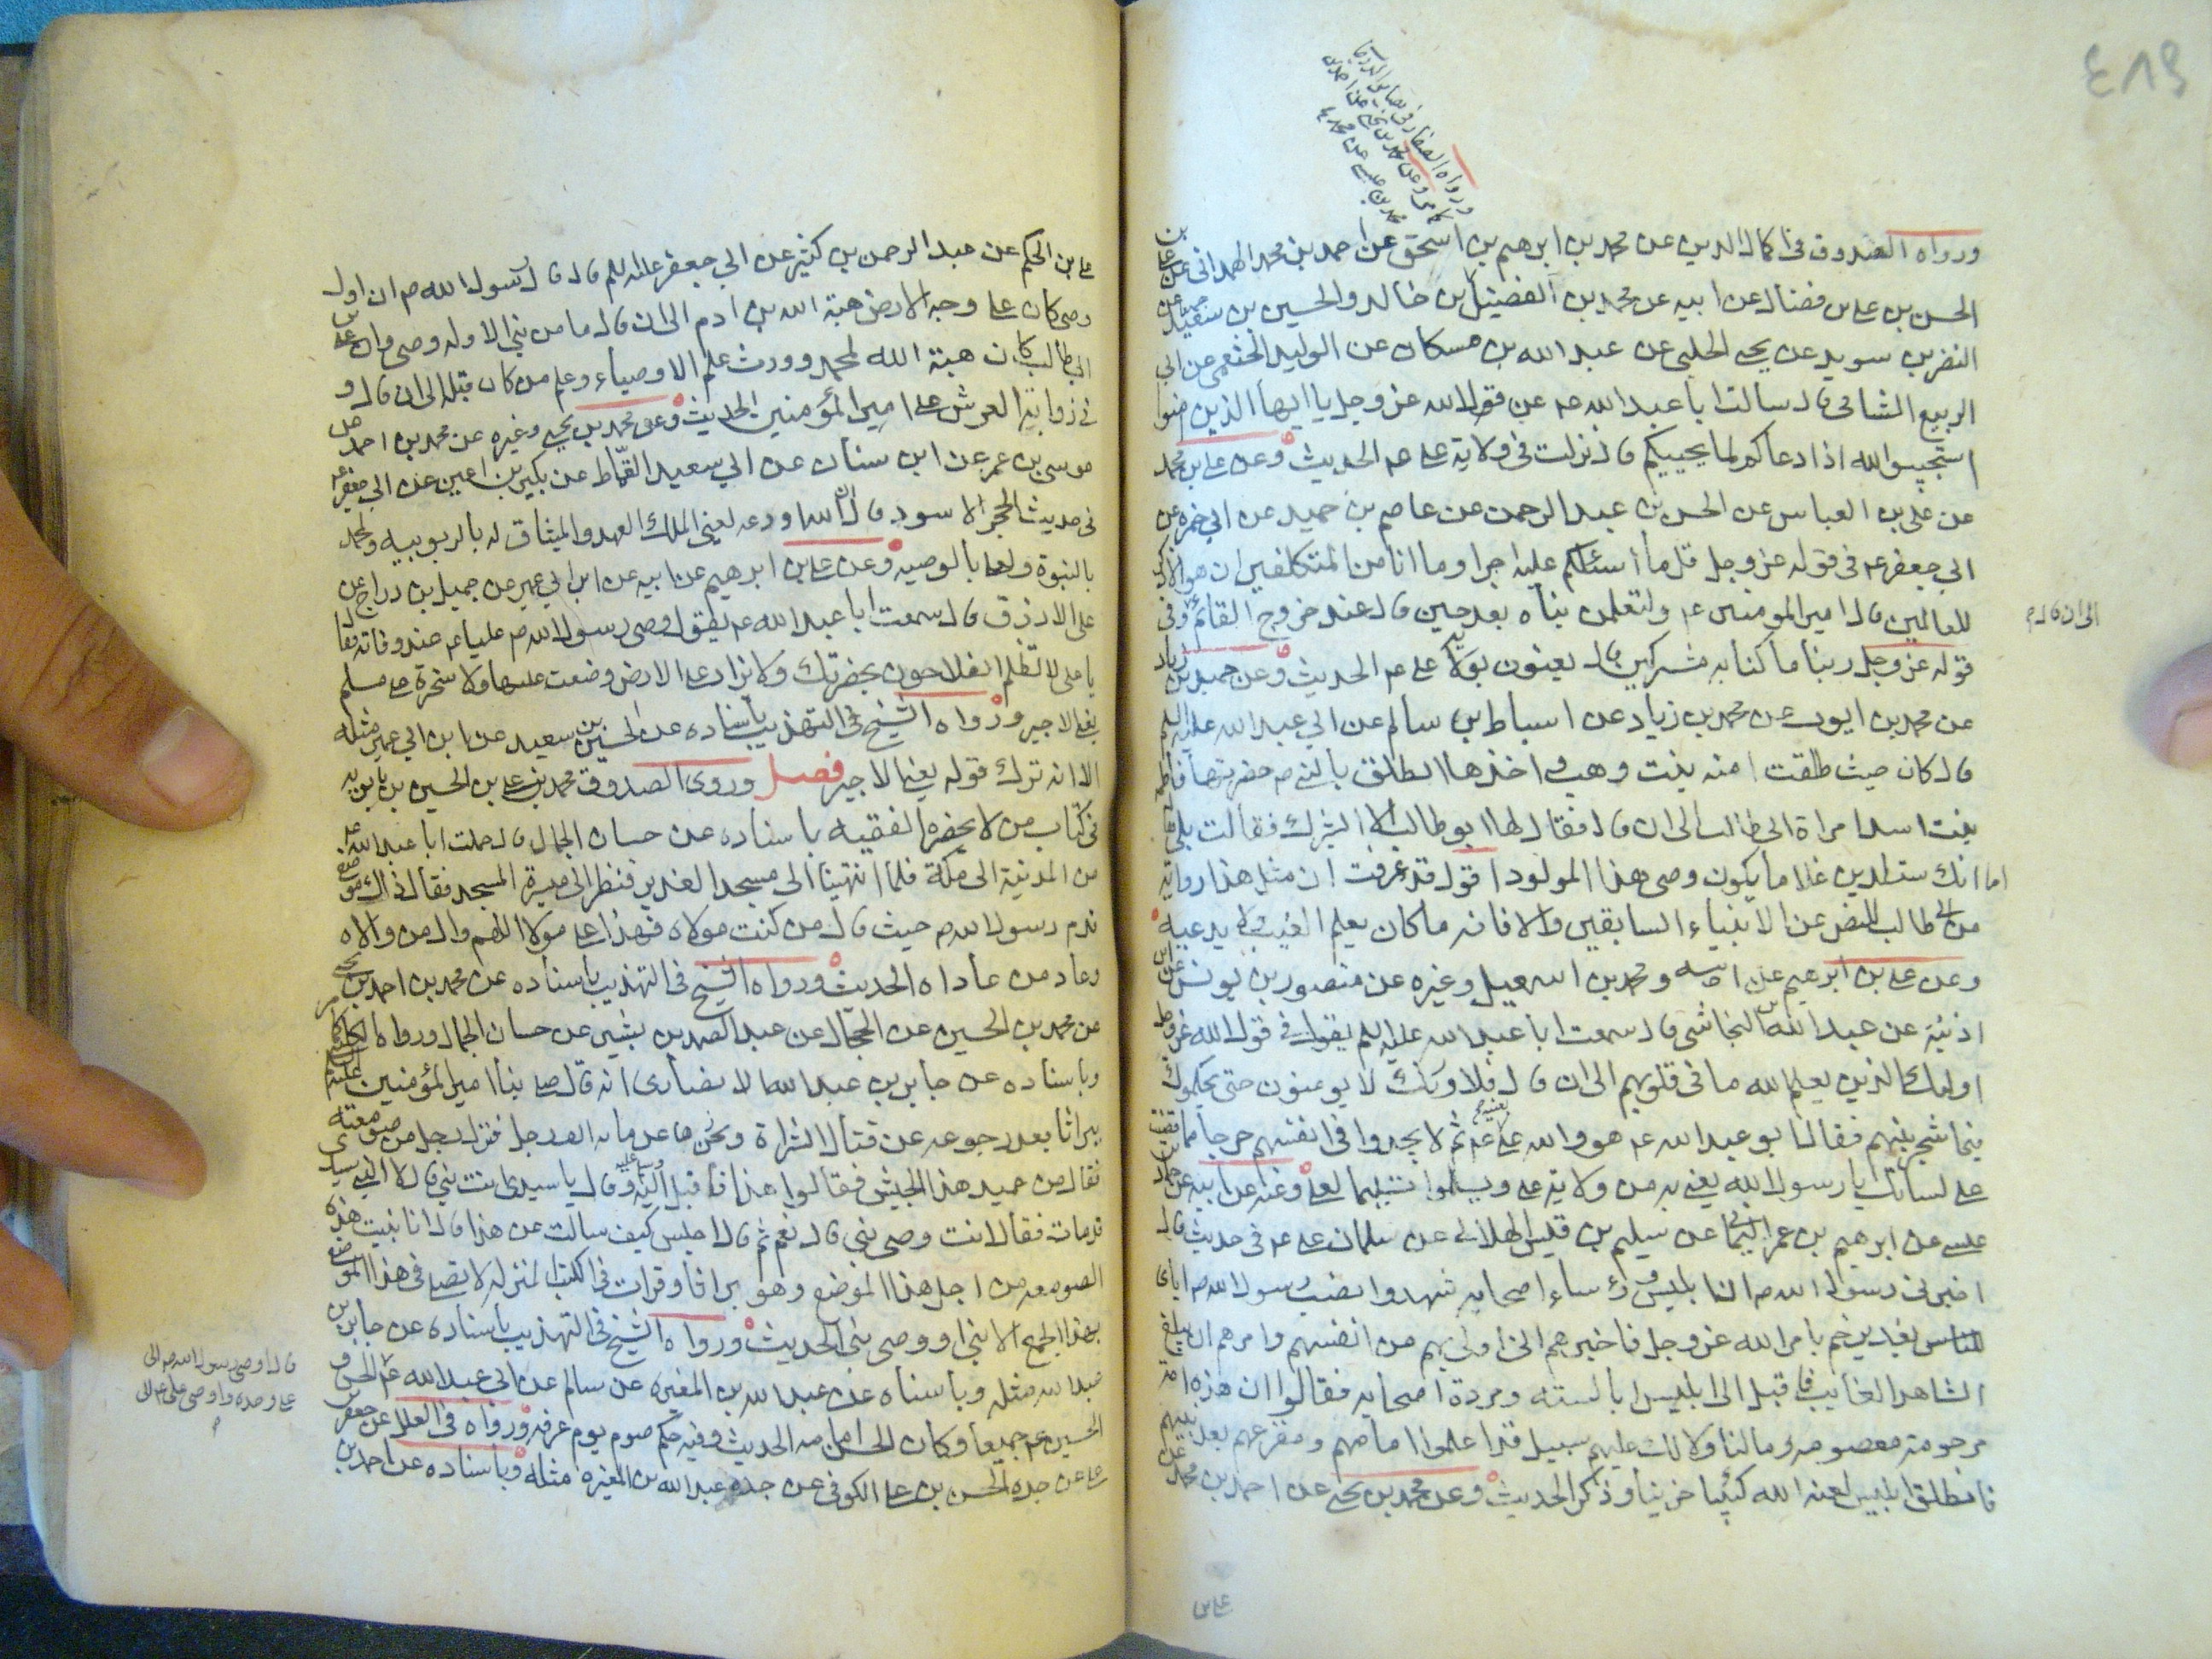 ٤١٩
ورواه الصفار في بصائر الدرجات
ورواه الصدوق في اكمال الدين عن محمد بن ابرهيم بن اسحق عن احمد بن محمد الهمداني عن علي بن
الحسن بن علي بن فضال عن ابيه عن محمد بن الفضيل بن خالد والحسين بن سعيد عن
النضر بن سويد عن يحيى الحلبي عن عبد الله بن مسكان عن الوليد الخثعمي عن ابي
الربيع الشامي قال سالت ابا عبد الله عه عن قول الله عز وجل يا ايها الذين امنوا
استجيبوا لله اذا دعاكم لما يحييكم قال نزلت في ولاية علي عه الحديث وعن علي بن محمد
عن علي بن العباس عن الحسن بن عبد الرحمن عن عاصم بن حميد عن ابي حمزه عن
ابي جعفر عه في قوله عز وجل قل ما أسئلكم عليه اجرا وما انا من المتكلفين ان هو الا ذكر
للعالمين قال امير المومنين عه ولتعلمن نباه بعد حين قال عند خروج القائم وفي
الى ان قال
قوله عز وجل ربنا ما كنا به مشركين قال يعنون بولاية علي عه الحديث وعن حميد بن زياد
عن محمد بن ايوب عن محمد بن زياد عن اسباط بن سالم عن ابي عبد الله عليه السلم
قال كان حيث طلقت امنه بنت وهب واخذها الطلق بالنبي صه حضرتها فاطمة
بنت اسد امراة ابي طالب الى ان قال فقال لها ابو طالب
اما انك ستلدين غلاما يكون وصي هذا المولود اقول قد عرفت ان مثل هذا رواية
من ابي طالب للنص عن الانبياء السابقين والا فانه ما كان يعلم الغيب ولا يدعيه
وعن علي بن ابرهيم عن ابيه ومحمد بن اسمعيل وغيره عن منصور بن يونس عن ابن
اذينة عن عبد الله بن النجاشي قال سمعت ابا عبد الله عليه السلم يقول في قول الله عز وجل
اولئك الذين يعلم الله ما في قلوبهم الى ان قال فلا وربك لا يومنون حتى يحكموك
فيما شجر بينهم فقال ابو عبد الله عه هو والله علي عه ثم لا يجدوا في انفسهم حرجا مما قضيت
على لسانك يا رسول الله يعني به من ولاية علي ويسلموا تسليما لعلي وعنه عن ابيه عن حماد بن
عيسى عن ابرهيم بن عمر اليماني عن سليم بن قيس الهلالي عن سلمان عن علي عه في حديث قال
اخبرني رسول الله صه ان ابليس ورؤساء اصحابه شهدوا نصب رسول الله صه اياي
للناس بغدير خم بامر الله عز وجل فاخبرهم اني اولى بهم من انفسهم وامرهم ان يبلغ
الشاهد الغايب فاقبل الى ابليس ابالسته ومردة اصحابه فقالوا ان هذه امة
مرحومة معصومه وما لنا ولا لك عليهم سبيل قد اعلموا امامهم ومفزعهم بعد نبيهم
فانطلق ابليس لعنه الله كئيبا حزينا وذكر الحديث وعن محمد بن يحيى عن احمد بن محمد عن
علي بن
علي بن الحكم عن عبد الرحمن بن كثير عن ابي جعفر عليه السلم قال قال رسول الله صه ان اول
وصي كان على وجه الارض هبة الله بن ادم الى ان قال ما من نبي الا وله وصي وان علي بن
ابي طالب كان هبة الله لمحمد وورث علم الاوصياء وعلم من كان قبله الى ان قال و
في ذوابة العرش علي امير المؤمنين الحديث وعن محمد بن يحيى وغيره عن محمد بن احمد عن
موسى بن عمر عن ابن سنان عن ابي سعيد القمّاط عن بكير بن اعين عن ابي جعفر عه
في حديث الحجر الاسود قال ان الله اودعه يعني الملك العهد والميثاق له بالربوبيه ولمحمد
بالنبوة ولعلي بالوصيه وعن علي بن ابرهيم عن ابيه عن ابن ابي عمير عن جميل بن دراج عن
علي الازرق قال سمعت ابا عبد الله عه يقول وصى رسول الله صه عليا عه عند وفاته فقال
يا علي لا تظلم الفلاحون بحضرتك ولا نزاد على الارض وضعت عليها ولا سخرة على مسلم
يعني الاجير ورواه الشيخ في التهذيب باسناده عن الحسين بن سعيد عن ابن ابي عمير مثله
الا انه ترك قوله يعني الاجير فصل وروى الصدوق محمد بن علي بن الحسين بن بابويه
في كتاب من لا يحضره الفقيه باسناده عن حسان الجمال قال حملت ابا عبد الله عه
من المدينة الى مكة فلما انتهينا الى مسجد الغدير فنظر الى ميسرة المسجد فقال ذاك موضع
قدم رسول الله صه حيث قال من كنت مولاه فهذا علي مولاه اللهم وال من والاه
وعاد من عاداه الحديث ورواه الشيخ في التهذيب باسناده عن محمد بن احمد بن يحيى
عن محمد بن الحسين عن الحجّال عن عبد الصمد بن بشير عن حسان الجمال ورواه الكليني كما مر
وباسناده عن جابر بن عبد الله الانصاري انه قال صلى بنا امير المؤمنين عليه السلم
ببراثا بعد رجوعه عن قتال الشراة ونحن زهاء عن مائه الف رجل فنزل رجل من صومعته
فقال من عميد هذا الجيش فقالوا هذا فاقبل اليه وسلم عليه وقال يا سيدي انت نبي قال لا النبي سيدي
قد مات فقال انت وصي نبي قال نعم ثم قال اجلس كيف سالت عن هذا قال انا بنيت هذه
الصومعه من اجل هذا الموضع وهو براثا وقرات في الكتب المنزله لا يصلي في هذا الموضع
بهذا الجمع الا نبي او وصي نبي الحديث ورواه الشيخ في التهذيب باسناده عن جابر بن
عبد الله مثله وباسناه عن عبد الله بن المغيرة عن سالم عن ابي عبد الله عه الحسن و
قال اوصى رسول الله صه الى
علي وحده واوصى علي عه الى
الحسين عه جميعا وكان الحسن امامه الحديث وفيه حكم صوم يوم عرفه ورواه في العلل عن جعفر بن
علي عن جده الحسن بن علي الكوفي عن جده عبد الله بن المغيره مثله وباسناده عن احمد بن